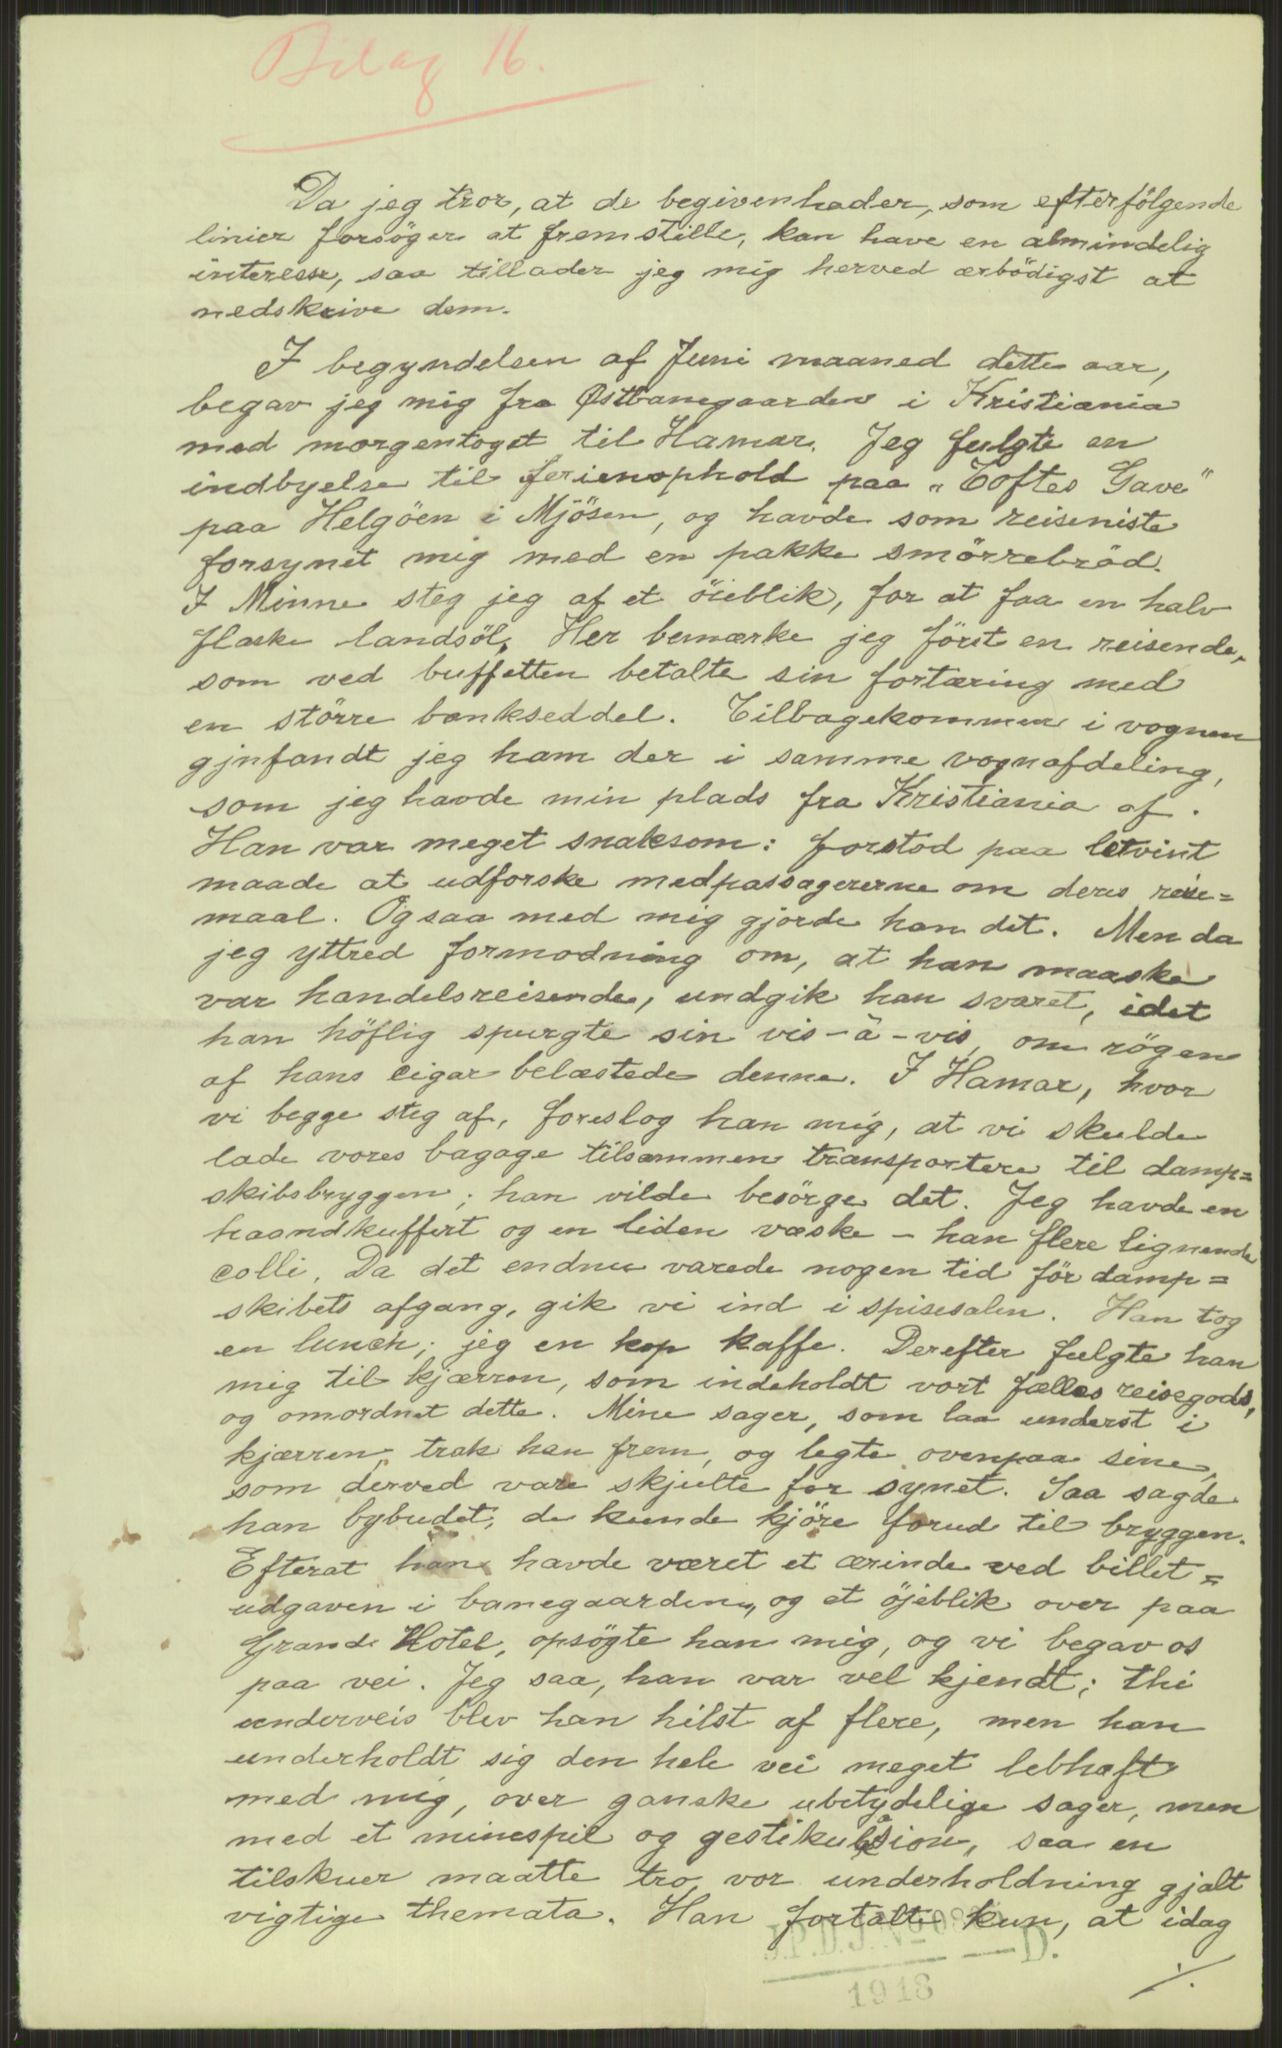 Bilag 16.
Da jeg tror, at de begivenheder, som efterfölgende
linier forsöger at fremstille, kan have en almindelig
interesse, saa tillader jeg mig herved ærbödigst at
nedskrive dem.
I begyndelsen af Juni maaned dette aar,
begav jeg mig fra Østbanegaarden i Kristiania
med morgentoget til Hamar. Jeg fulgte en
indbyelse til ferienophold paa „Toftes Gave"
paa Helgöen i Mjösen, og havde som reiseniste
forsynet mig med en pakke smörrebröd.
I Minne steg jeg af et öieblik, for at faa en halv
flaske landsöl. Her bemærke jeg först en reisende,
som ved buffetten betalte sin fortæring med
en större bankseddel. Tilbagekommen i vognen
gjnfandt jeg ham der i samme vognafdeling,
som jeg havde min plads fra Kristiania af.
Han var meget snaksom: forstod paa letvint
maade at udforske medpassagererne om deres reise=
maal. Ogsaa med mig gjorde han det. Men da
jeg yttred formodning om, at han maaske
var handelsreisende, undgik han svaret, idet
han höflig spurgte sin vis-à-vis, om rögen
af hans cigar belæstede denne. I Hamar, hvor
vi begge steg af, foreslog han mig, at vi skulde
lade vores bagage tilsammen transportere til damp=
skibsbryggen; han vilde besörge det. Jeg havde en
haandkuffert og en liden væske - han flere lignende
colli. Da det endnu varede nogen tid för damp=
skibets afgang, gik vi ind i spisesalen. Han tog
en lunch; jeg en kop kaffe. Derefter fulgte han
mig til kjærren, som indeholdt vort fælles reisegods,
og omordnet dette. Mine sager, som laa underst i
kjærren, trak han frem, og legte ovenpaa sine,
som derved vare skjulte for synet. Saa sagde
han bybudet, de kunde kjöre forud til bryggen.
Efterat han havde været et ærinde ved billet=
udgaven i banegaarden, og et öjeblik over paa
Grand Hotel, opsögte han mig, og vi begav os
paa vei. Jeg saa, han var vel kjendt; thi
underveis blev han hilst af flere, men han
underholdt sig den hele vei meget lebhaft
med mig, over ganske ubetydelige sager, men
med et minespil og gestikulasion, saa en
tilskuer maatte tro, vor underholdning gjalt
vigtige themata. Han fortalte kun, at idag
D.
1918
./.